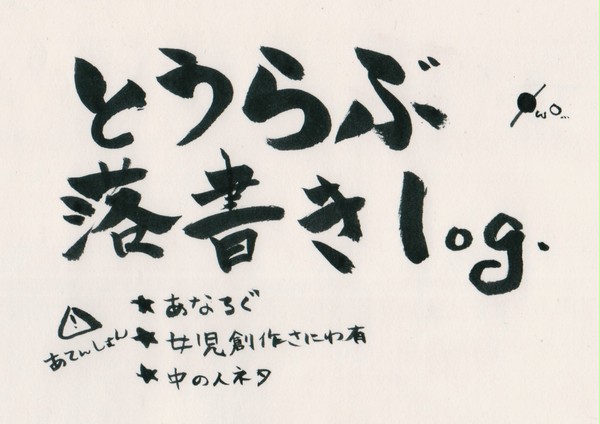 とうらぶ
落書きlog.
あてんしょん
★あなろぐ
★女児創作さにわ有
★中の人ネタ